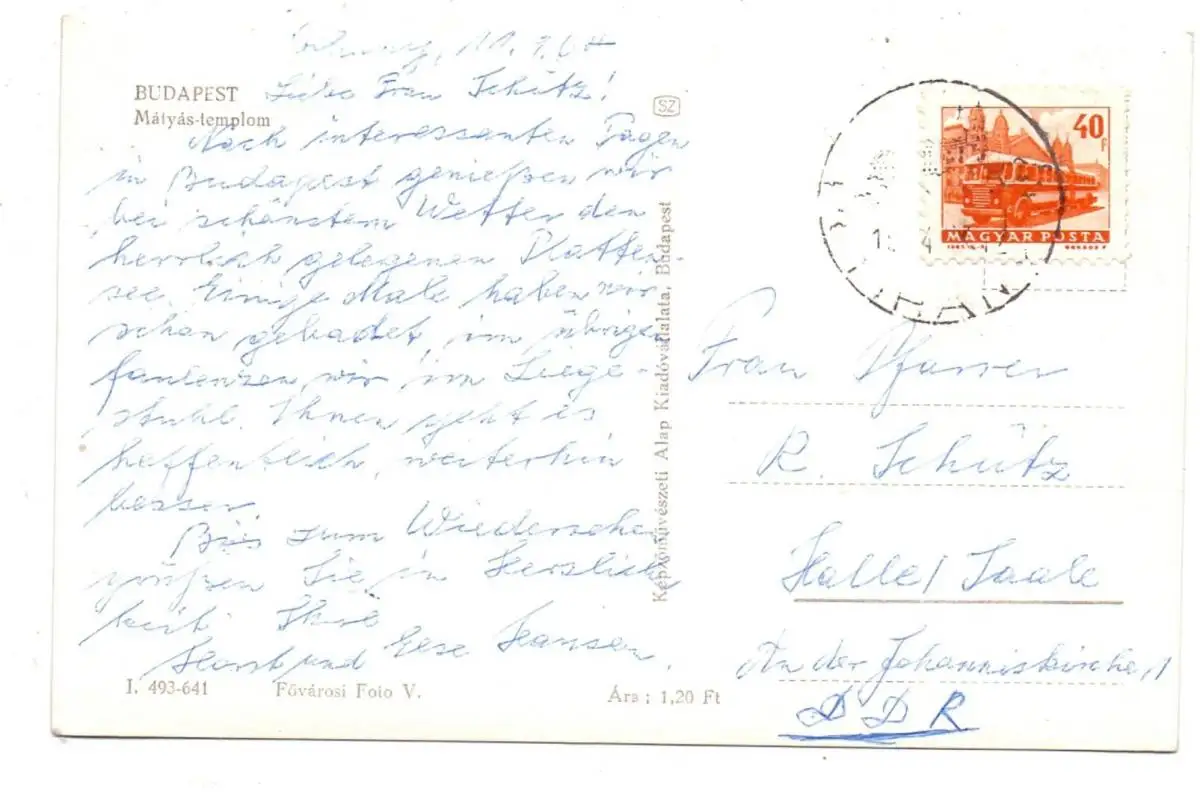 BUDAPEST
Mátyás-templom
Liebe Frau Schütz!
Nach interessanten Tagen
in Budapest genießen wir
bei schönstem Wetter den
herrlich gelegenen Platten-
see. Einige Male haben wir
schon gebadet, im übrigen
faulenzen wir im Liege-
stuhl. Ihnen geht es
hoffentlich weiterhin
besser.
Bis zum Wiedersehen
grüßen Sie in Herzlich-
keit Ihre
Horst und Else Hansen.
I. 493-641 Fővárosi Foto V. Ára : 1,20 Ft
SZ
Képzőművészeti Alap Kiadóvállalata, Budapest
40 F
MAGYAR POSTA
Frau Pfarrer
R. Schütz
Halle/Saale
An der Johanniskirche 1
DDR